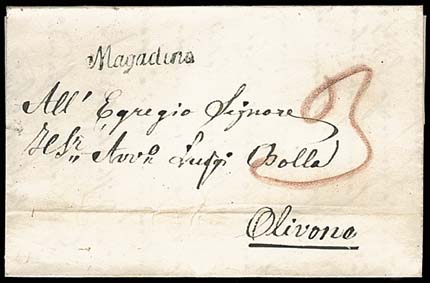 Magadino
All' Egregio Signore
Il Sr. Avvo. Luigi Bolla
3
Olivone